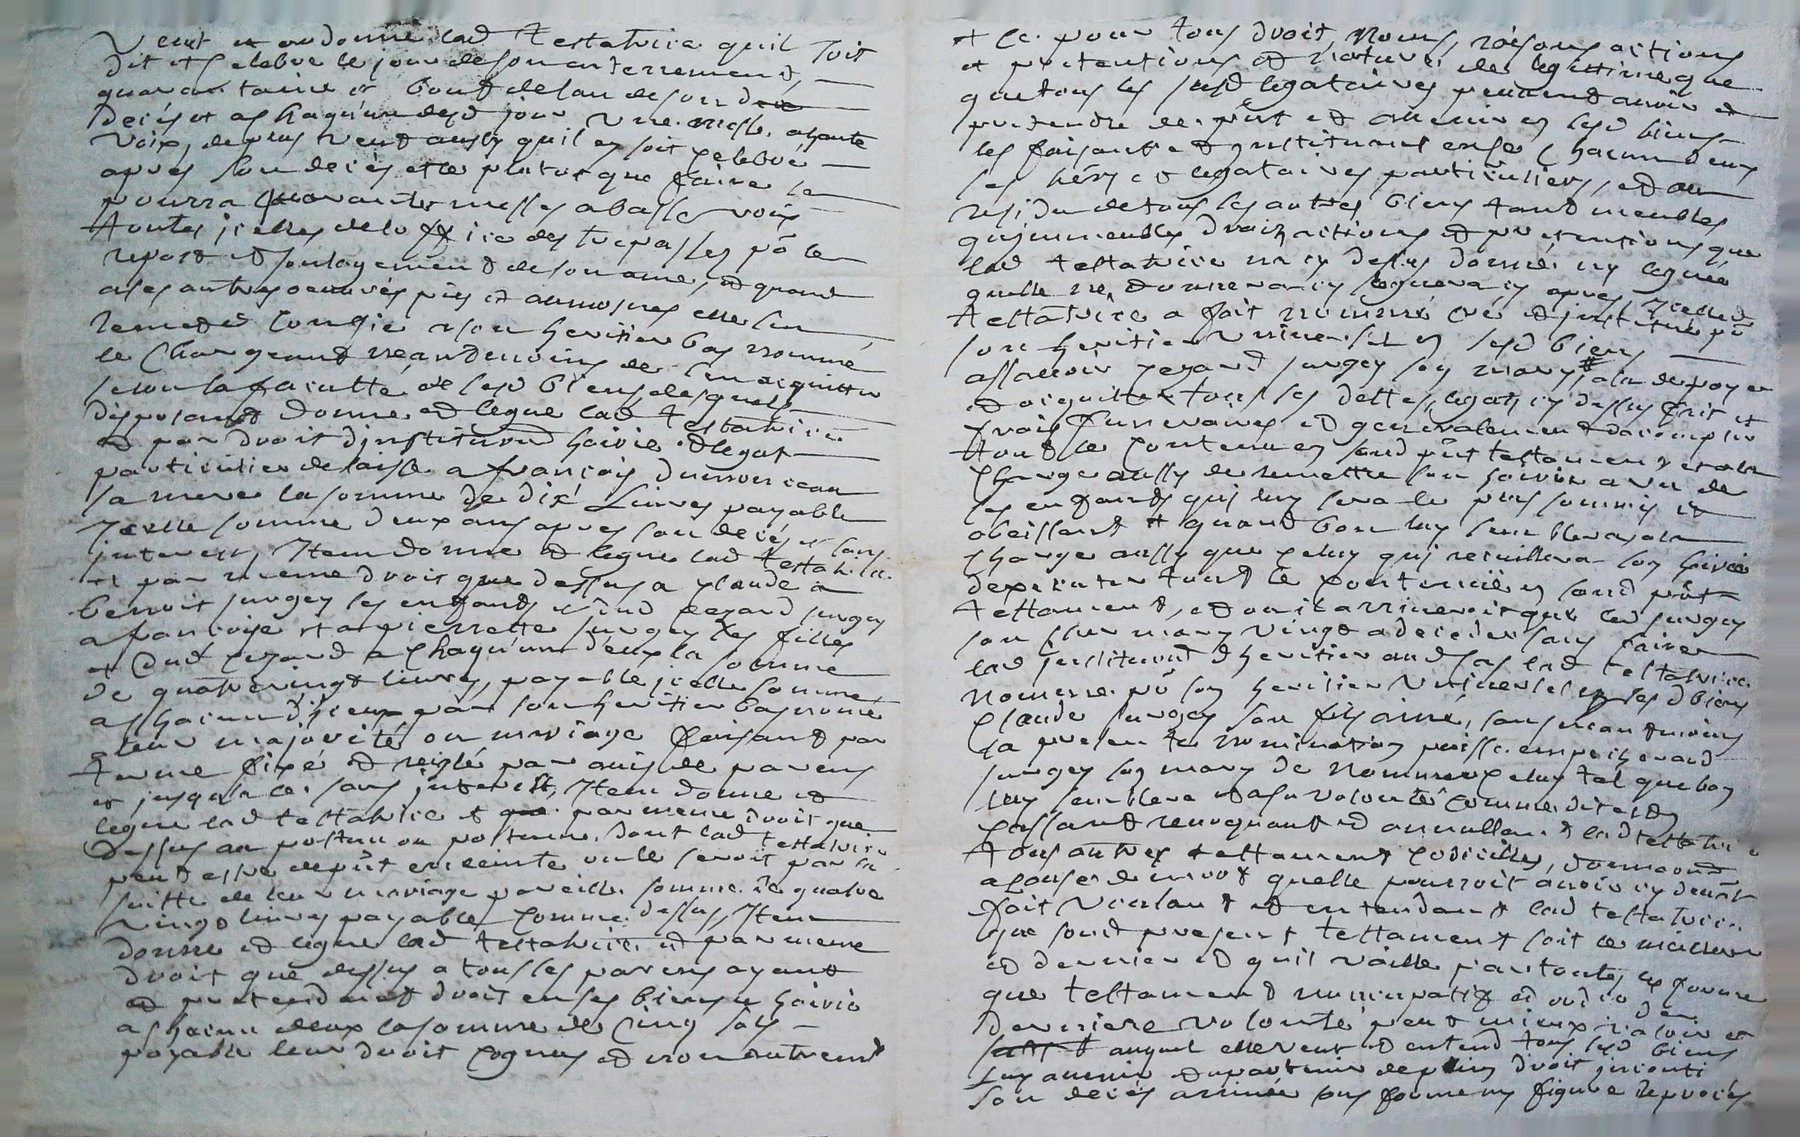 Veut et ordonne lad testatrice quil soit
dit et celebré le jour de son enterrement
quarantaine et bout de lan de son
decés et a chaqu'un desd jour une messe a haute
voix, de plus veut aussy quil en soit celebré
apres son decés et le plutot que faire se
pourra quarante messes a basse voix
toutes jcelles de loffice des trepassés pô le
repos et soulagement de son ame, et quand
a ses autres oeuvres pies et aumosnes elle sen
remet et confie a son heritier bas nommé
le chargeant neantmoins de sen acquitter
selon la faculté de sesd biens desquels
disposant donne et legue lad testatrice
et par droit dinstitution hoirie et legat
particulier delaisse a françois dumonceau
sa mere la somme de dix Livres payable
jcelle somme deux ans apres son decés et sans
interest, Item donne et legue lad testatrice
et par meme droit que dessus a claude a
benoit surgey ses enfants et dud pezard surgey
a françoise et a pierrette surgey ses filles
et dud pezard a chaqu'un deux la somme
de quatrevingt livres, payable jcelle somme
a chacun d'jceux par son heritier bas nommé
a leur majorité ou mariage faisant par
terme fixé et reiglé par avis de parens
et jusqu'a ce sans interest, Item donne et
legue lad testatrice et par meme droit que
dessus au postume ou postume dont lad testatrice
peut estre depñt enceinte ou le seroit par la
suitte de leur mariage pareille somme de quatre
vingt livres payable comme dessus, Item
donne et legue lad testatrice et par meme
droit que dessus a tous ses parens ayant
et pretendant droit en ses biens et hoirie
a chacun deux la somme de cinq sols
payable leur droit cognus et non autrement
et ce pour tous droit, noms, raisons actions
et pretentions et nature de legittime que
que tous les susd legataires peuvent avoir et
pretendre de pñt et a lavenir en sesd biens
les faisant et jnstituant en ce chacun deux
ses hers et legataires particuliers, et au
residu de tous ses autres biens tant meubles
qu'jmmeubles droits actions et pretentions que
lad testatrice na cy dessus donné ny legué
quelle ne donnera ny leguera cy apres, jcelle
testatrice a fait nommé créé et jnstitué pô
son heritier universel en sesd biens
assavoir pezard surgey son mary, a la de payer
et acquitter tous ses dettes, legats cy dessus frait et
frais funeraires et generalement daccomplir
tout le contenu en sond pñt testament et a la
charge aussy de remettre son hoirie a un de
ses enfants qui luy sera le plus soumis et
obeissant et quand bon luy semblera a la
charge aussy que celuy qui recuillera son hoirie
dexecuter tout le contenu en sond pñt
testament, et ou il arriveroit que led surgey
son cher mary vingt a deceder sans faire
lad jnstitution dheritier aud cas lad testatrice
nomme pô son heritier universel en sesd biens
claude surgey son fils ainé, sans neantmoins
la presente nomination puisse empecher aud
surgey son mary de nommer celuy tel que bon
luy semblera et a sa volonté comme dit est
cassant revoquant et annullant lad testatrice
tous autres testament codicilles, donnaons
a cause de mort quelle pourroit avoir cy devant
fait voulant et entendant lad testatrice
que sond present testament soit le meilleur
et dernier et quil vaille par toutes les forme
que testament nuncupatif et ord de
derniere volonté peut mieux valoir et
auquel elle veut et entend tous sesd biens
luy avenir et apartenir de plein droit jncontt
son decés arrivée sans forme ny figure de procés